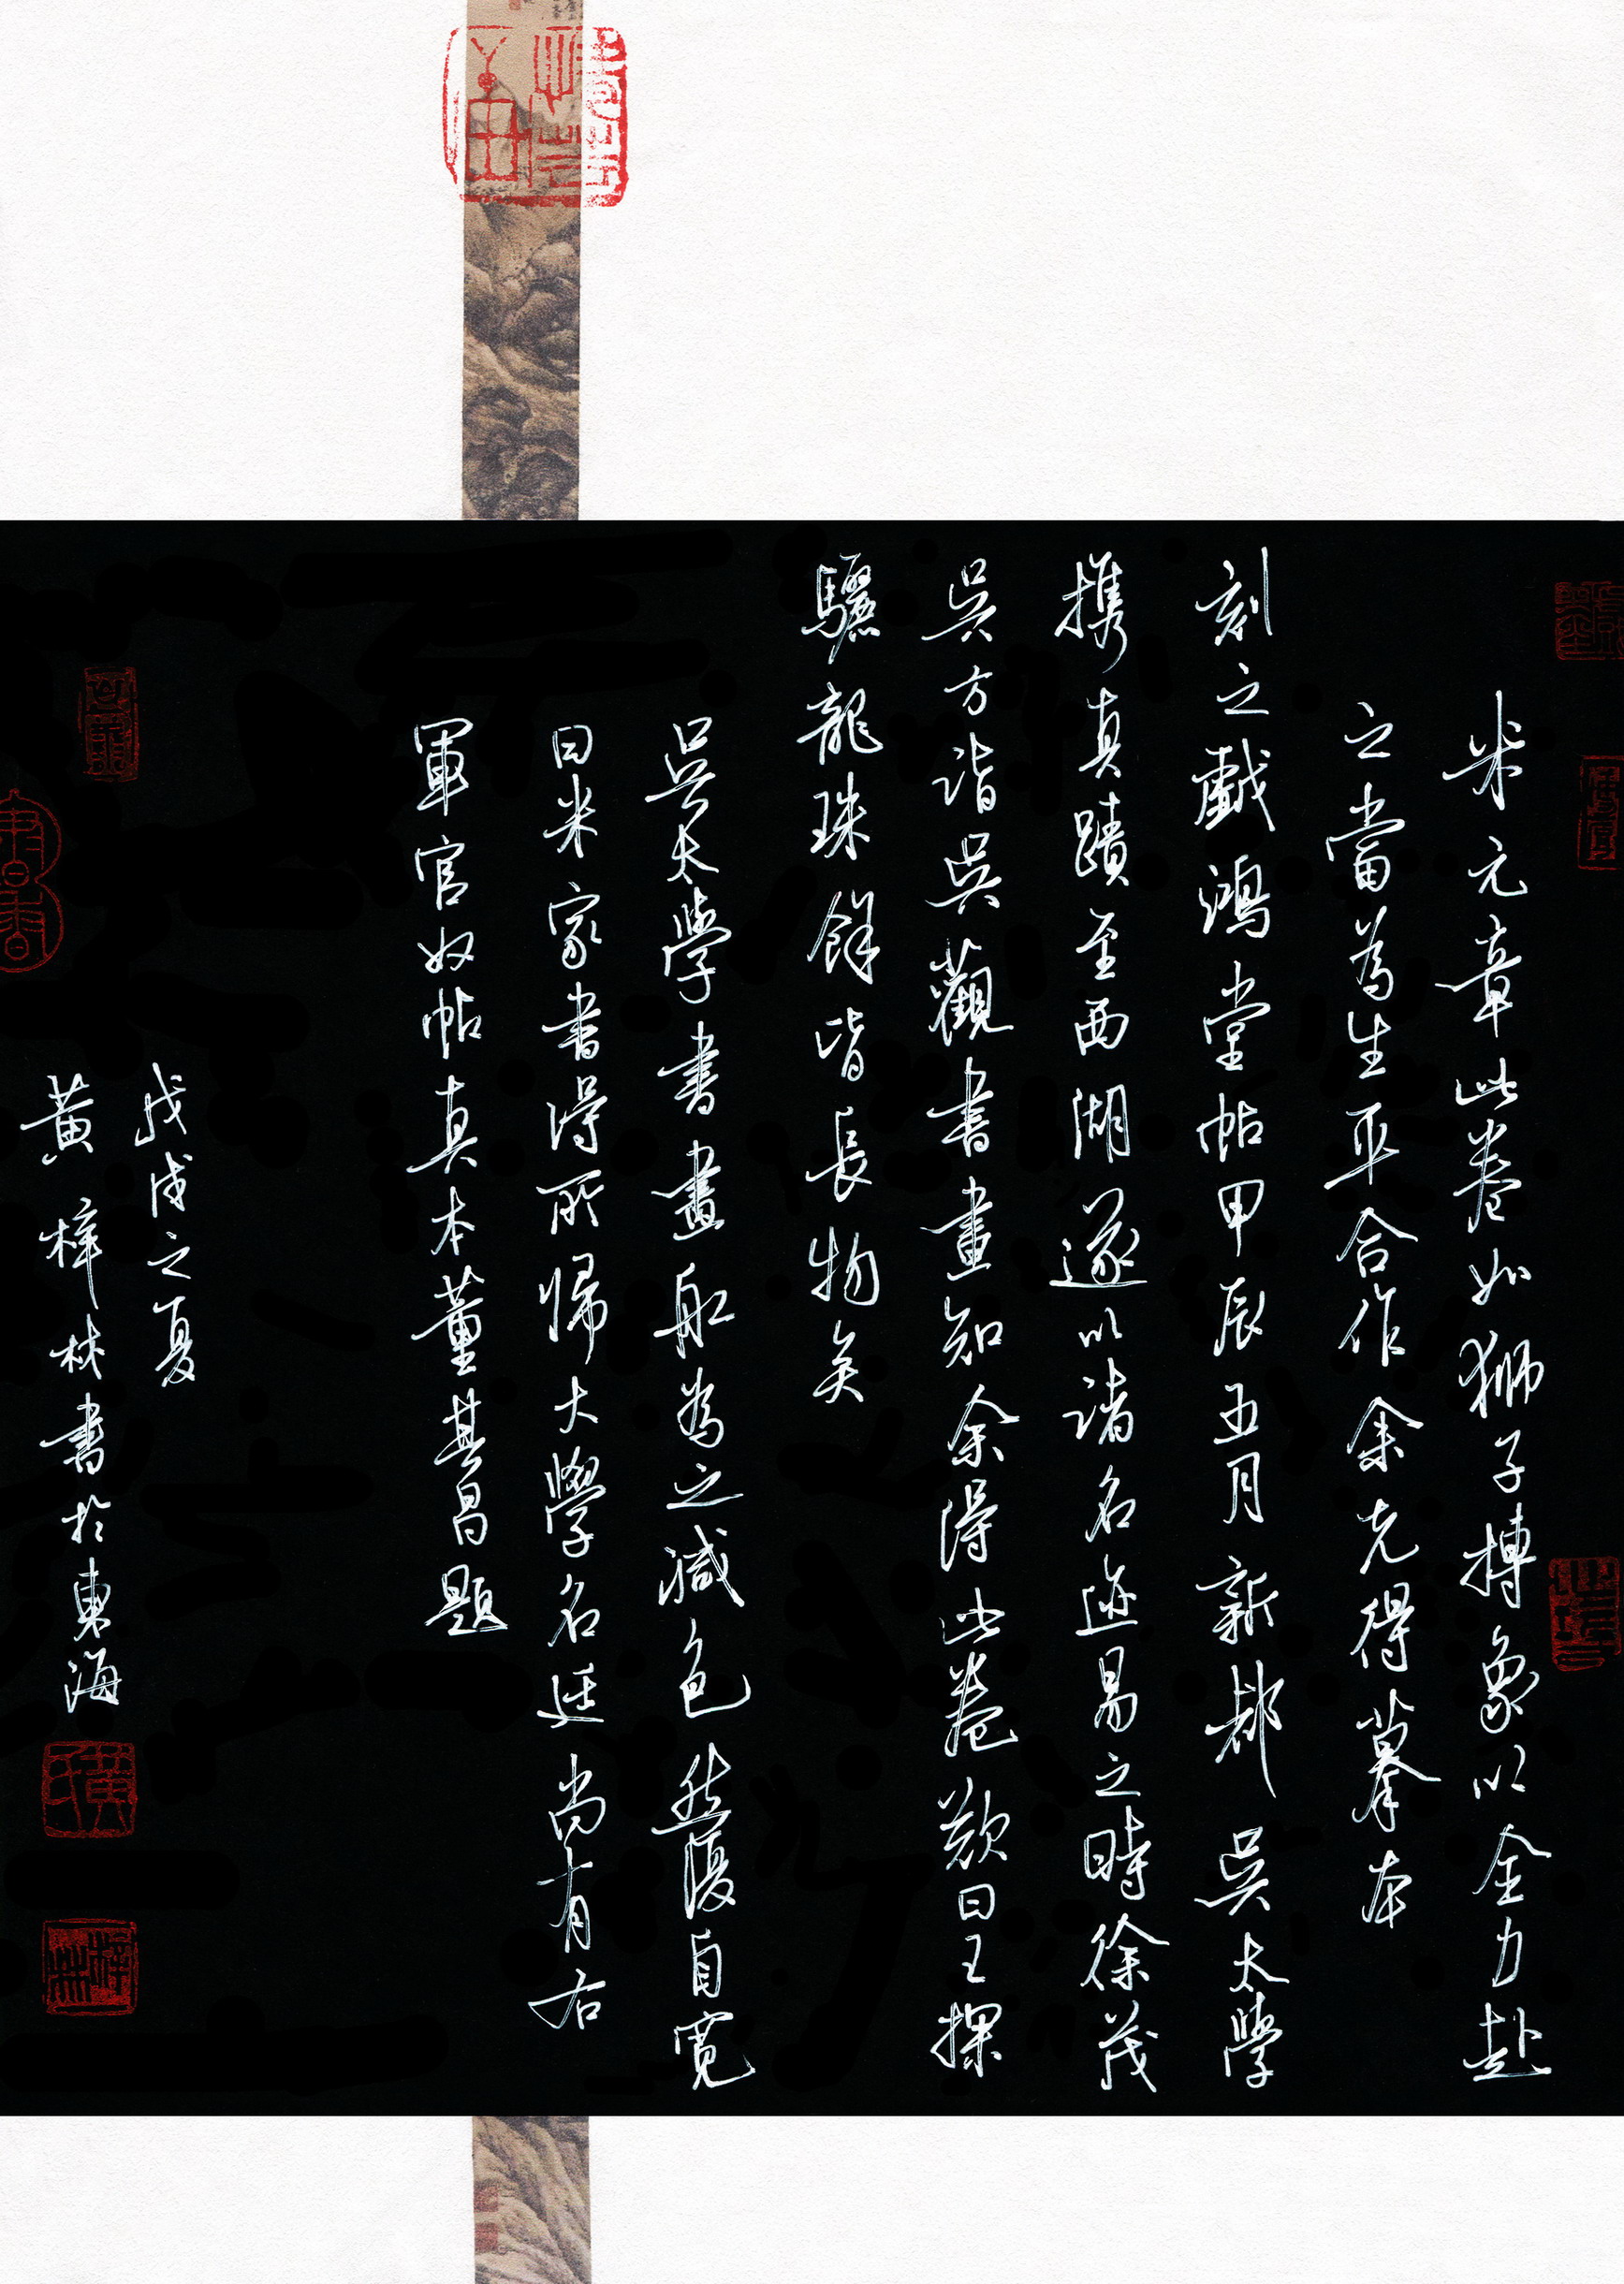 米元章此卷如狮子搏象以全力赴
之當為生平合作余先得摹本
刻之戲鴻堂帖甲辰五月新都吳太學
携真蹟至西湖遂以諸名迹易之時徐茂
吳方詣吳觀書畫知余得此卷歎曰已探
驪龍珠餘皆長物矣
吳太學書畫船為之減色然復自寬
曰米家書得所歸大學名迋尚有右
軍官奴帖真本董其昌題
戊戌之夏
黃梓林書於東海
黃氏
梓林